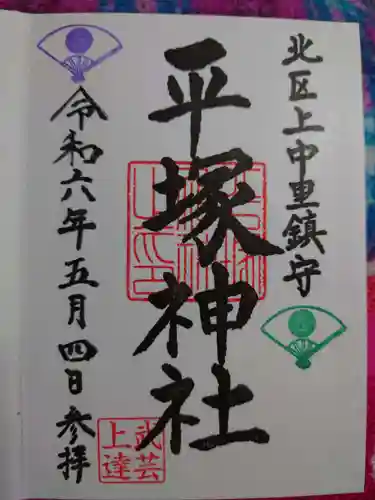 北区上中里鎮守
平塚神社
武芸
上達
令和六年五月四日参拝